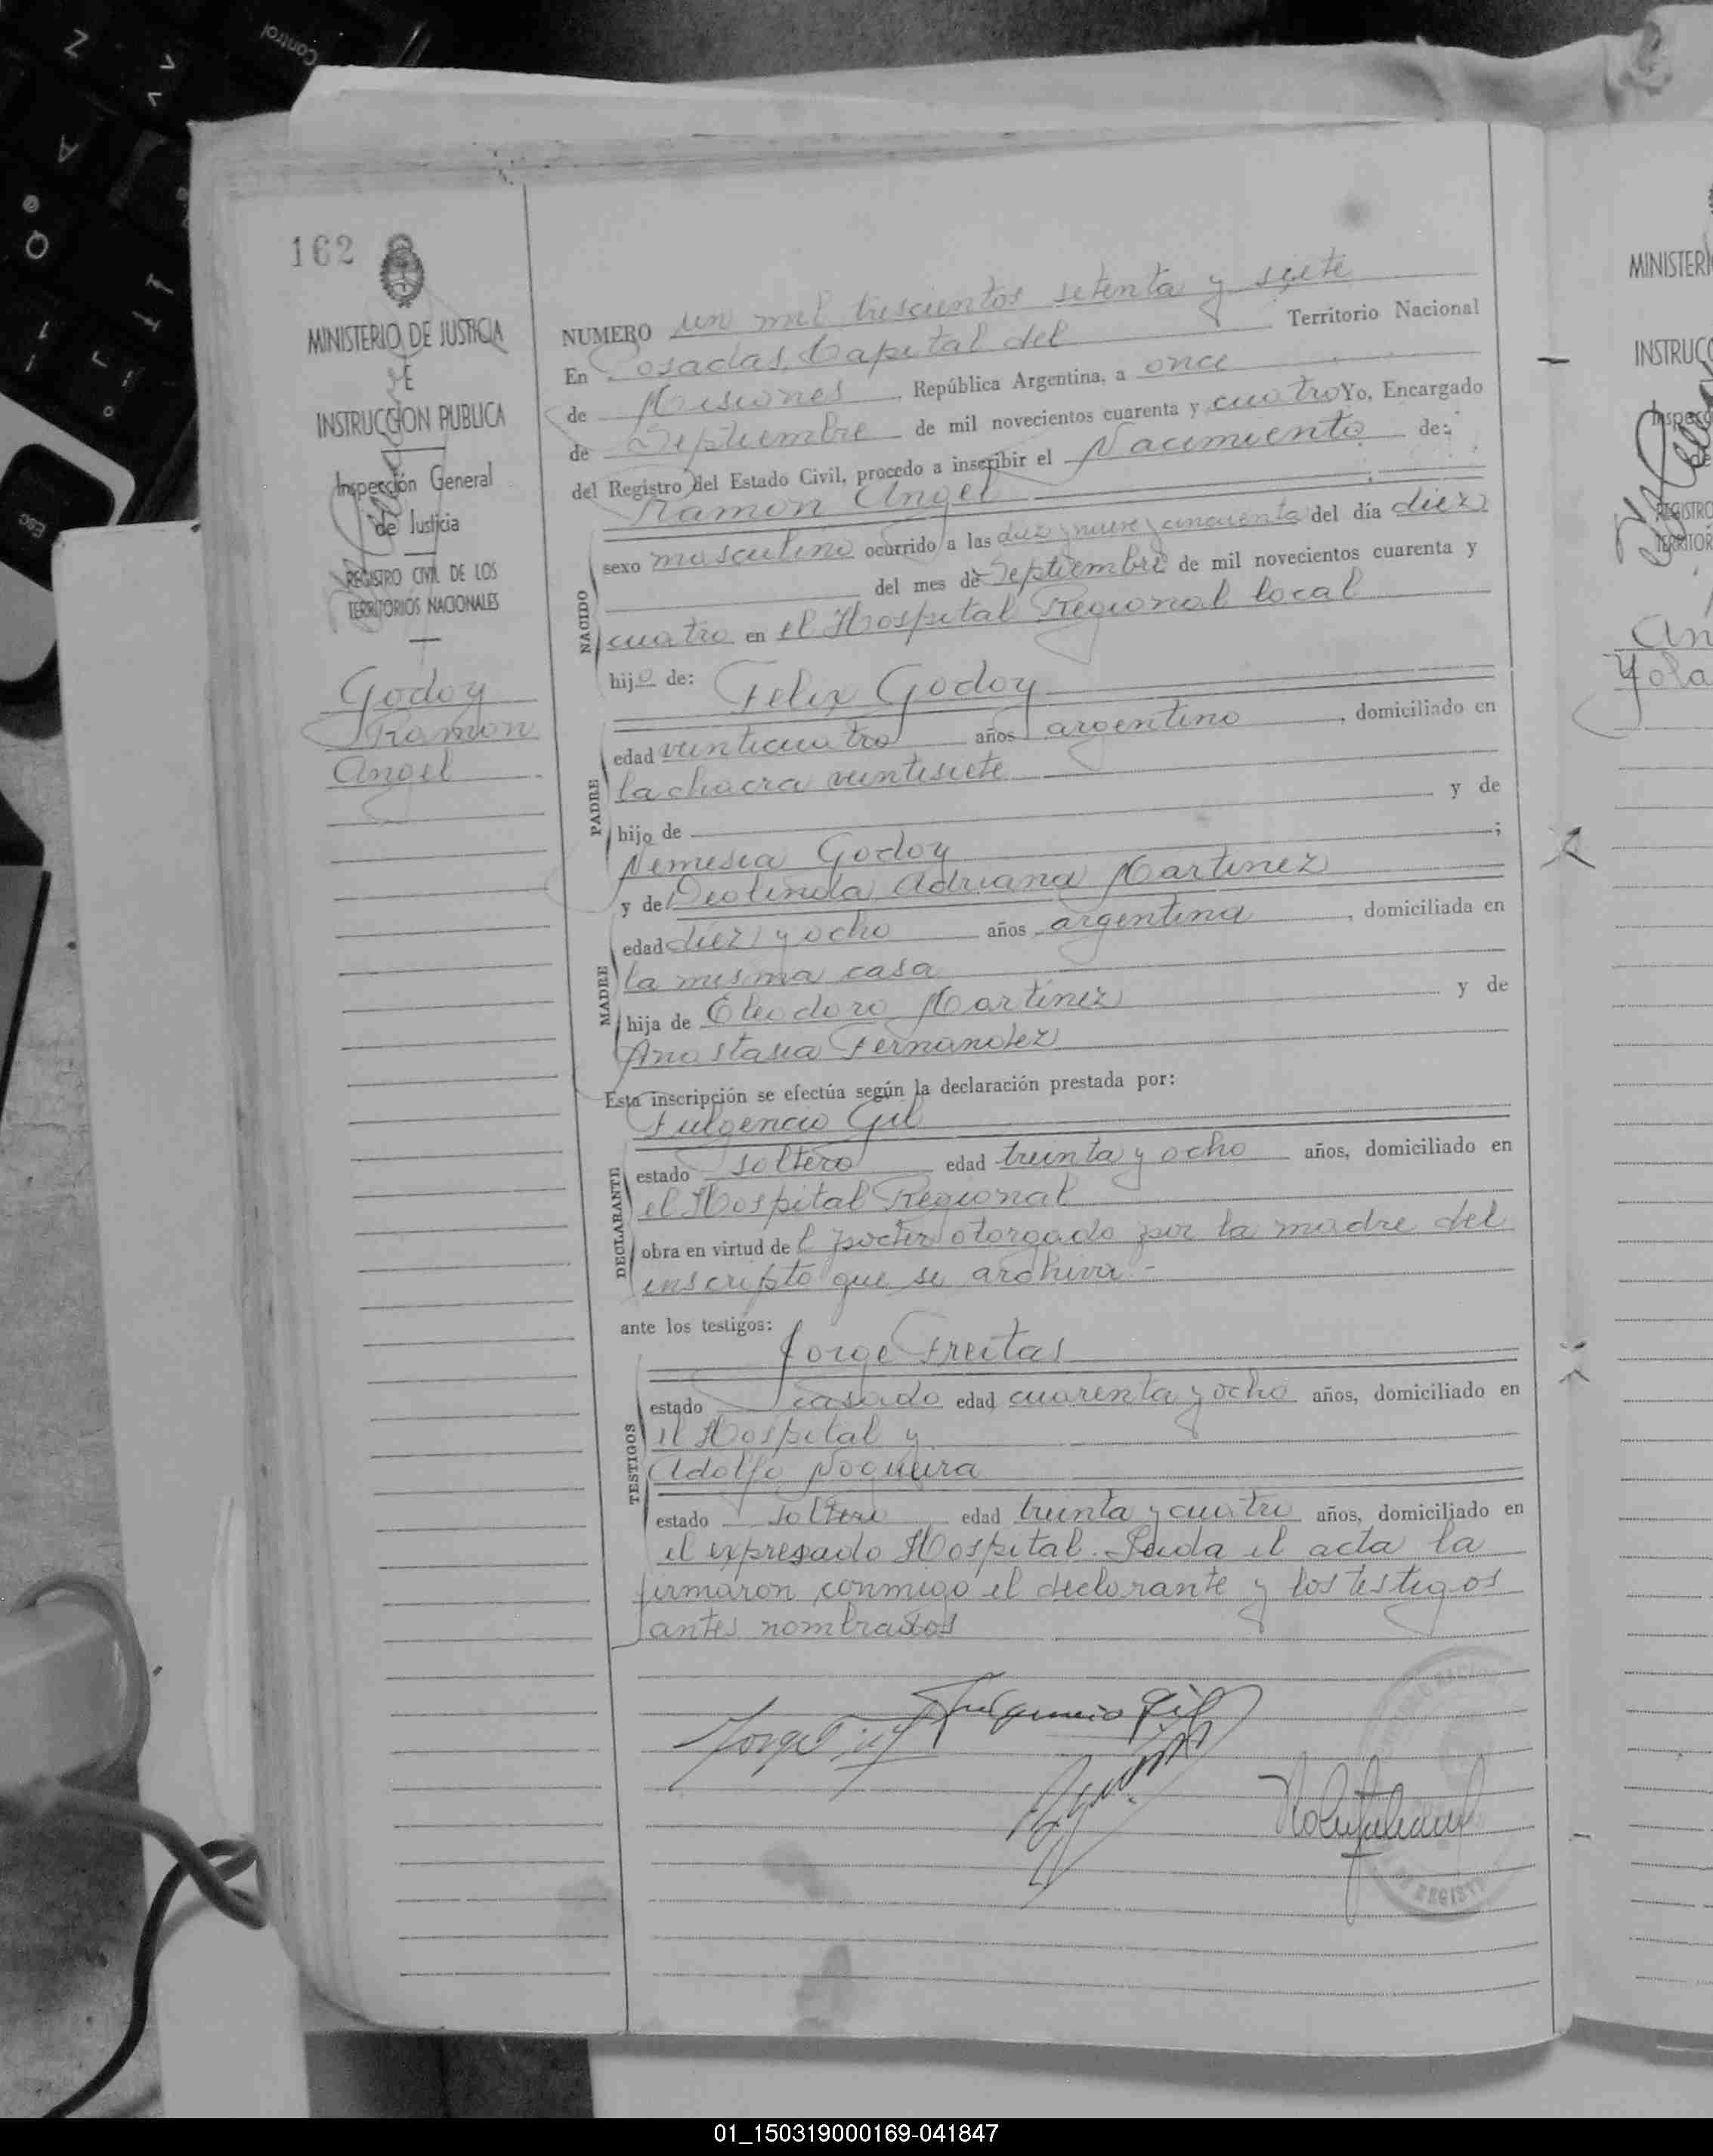 Control
Z
A
Q
Esc
162
MINISTERIO DE JUSTICIA
E
INSTRUCCION PUBLICA
Inspección General
de Justicia
REGISTRO CIVIL DE LOS
TERRITORIOS NACIONALES
Godoy
Ramon
Angel
NUMERO un mil trescientos setenta y siete
En Posadas, Capital del Territorio Nacional
de Misiones, República Argentina, a once
de Septiembre de mil novecientos cuarenta y cuatro Yo, Encargado
del Registro del Estado Civil, procedo a inscribir el Nacimiento de:
Ramon Angel
NACIDO
sexo masculino ocurrido a las diez y nueve y cincuenta del día diez
del mes de Septiembre de mil novecientos cuarenta y
cuatro en el Hospital Regional local
hijo de: Felix Godoy
PADRE
edad veinticuatro años argentino, domiciliado en
la chacra veintisiete
hijo de y de
Nemesia Godoy ;
y de Deolinda Adriana Martinez
MADRE
edad diez y ocho años argentina, domiciliada en
la misma casa
hija de Eleodoro Martinez y de
Anastasia Fernandez
Esta inscripción se efectúa según la declaración prestada por:
Fulgencio Gil
DECLARANTE
estado soltero edad treinta y ocho años, domiciliado en
el Hospital Regional
obra en virtud del poder otorgado por la madre del
inscripto que se archiva.-
ante los testigos:
Jorge Freitas
TESTIGOS
estado casado edad cuarenta y ocho años, domiciliado en
el Hospital y
Adolfo Nogueira
estado soltero edad treinta y cuatro años, domiciliado en
el expresado Hospital. Leida el acta la
firmaron conmigo el declarante y los testigos
antes nombrados
Fulgencio Gil
MINISTERI
INSTRUC
An
Yola
01_150319000169-041847